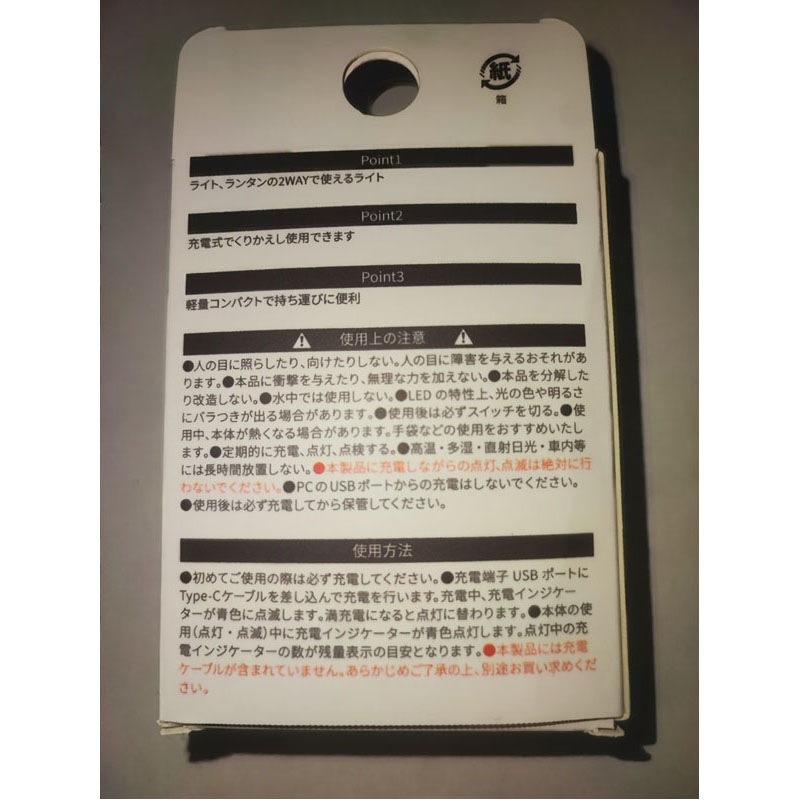 紙
箱
Point1
ライト、ランタンの2WAYで使えるライト
Point2
充電式でくりかえし使用できます
Point3
軽量コンパクトで持ち運びに便利
使用上の注意
●人の目に照らしたり、向けたりしない。人の目に障害を与えるおそれがあ
ります。●本品に衝撃を与えたり、無理な力を加えない。●本品を分解した
り改造しない。●水中では使用しない。●LEDの特性上、光の色や明るさ
にバラつきが出る場合があります。●使用後は必ずスイッチを切る。●使
用中、本体が熱くなる場合があります。手袋などの使用をおすすめいたし
ます。●定期的に充電、点灯、点検する。●高温・多湿・直射日光・車内等
には長時間放置しない。●本製品に充電しながらの点灯、点滅は絶対に行
わないでください。●PCのUSBポートからの充電はしないでください。
●使用後は必ず充電してから保管してください。
使用方法
●初めてご使用の際は必ず充電してください。●充電端子USBポートに
Type-Cケーブルを差し込んで充電を行います。充電中、充電インジケー
ターが青色に点滅します。満充電になると点灯に替わります。●本体の使
用(点灯・点滅)中に充電インジケーターが青色点灯します。点灯中の充
電インジケーターの数が残量表示の目安となります。●本製品には充電
ケーブルが含まれていません。あらかじめご了承の上、別途お買い求めくだ
さい。